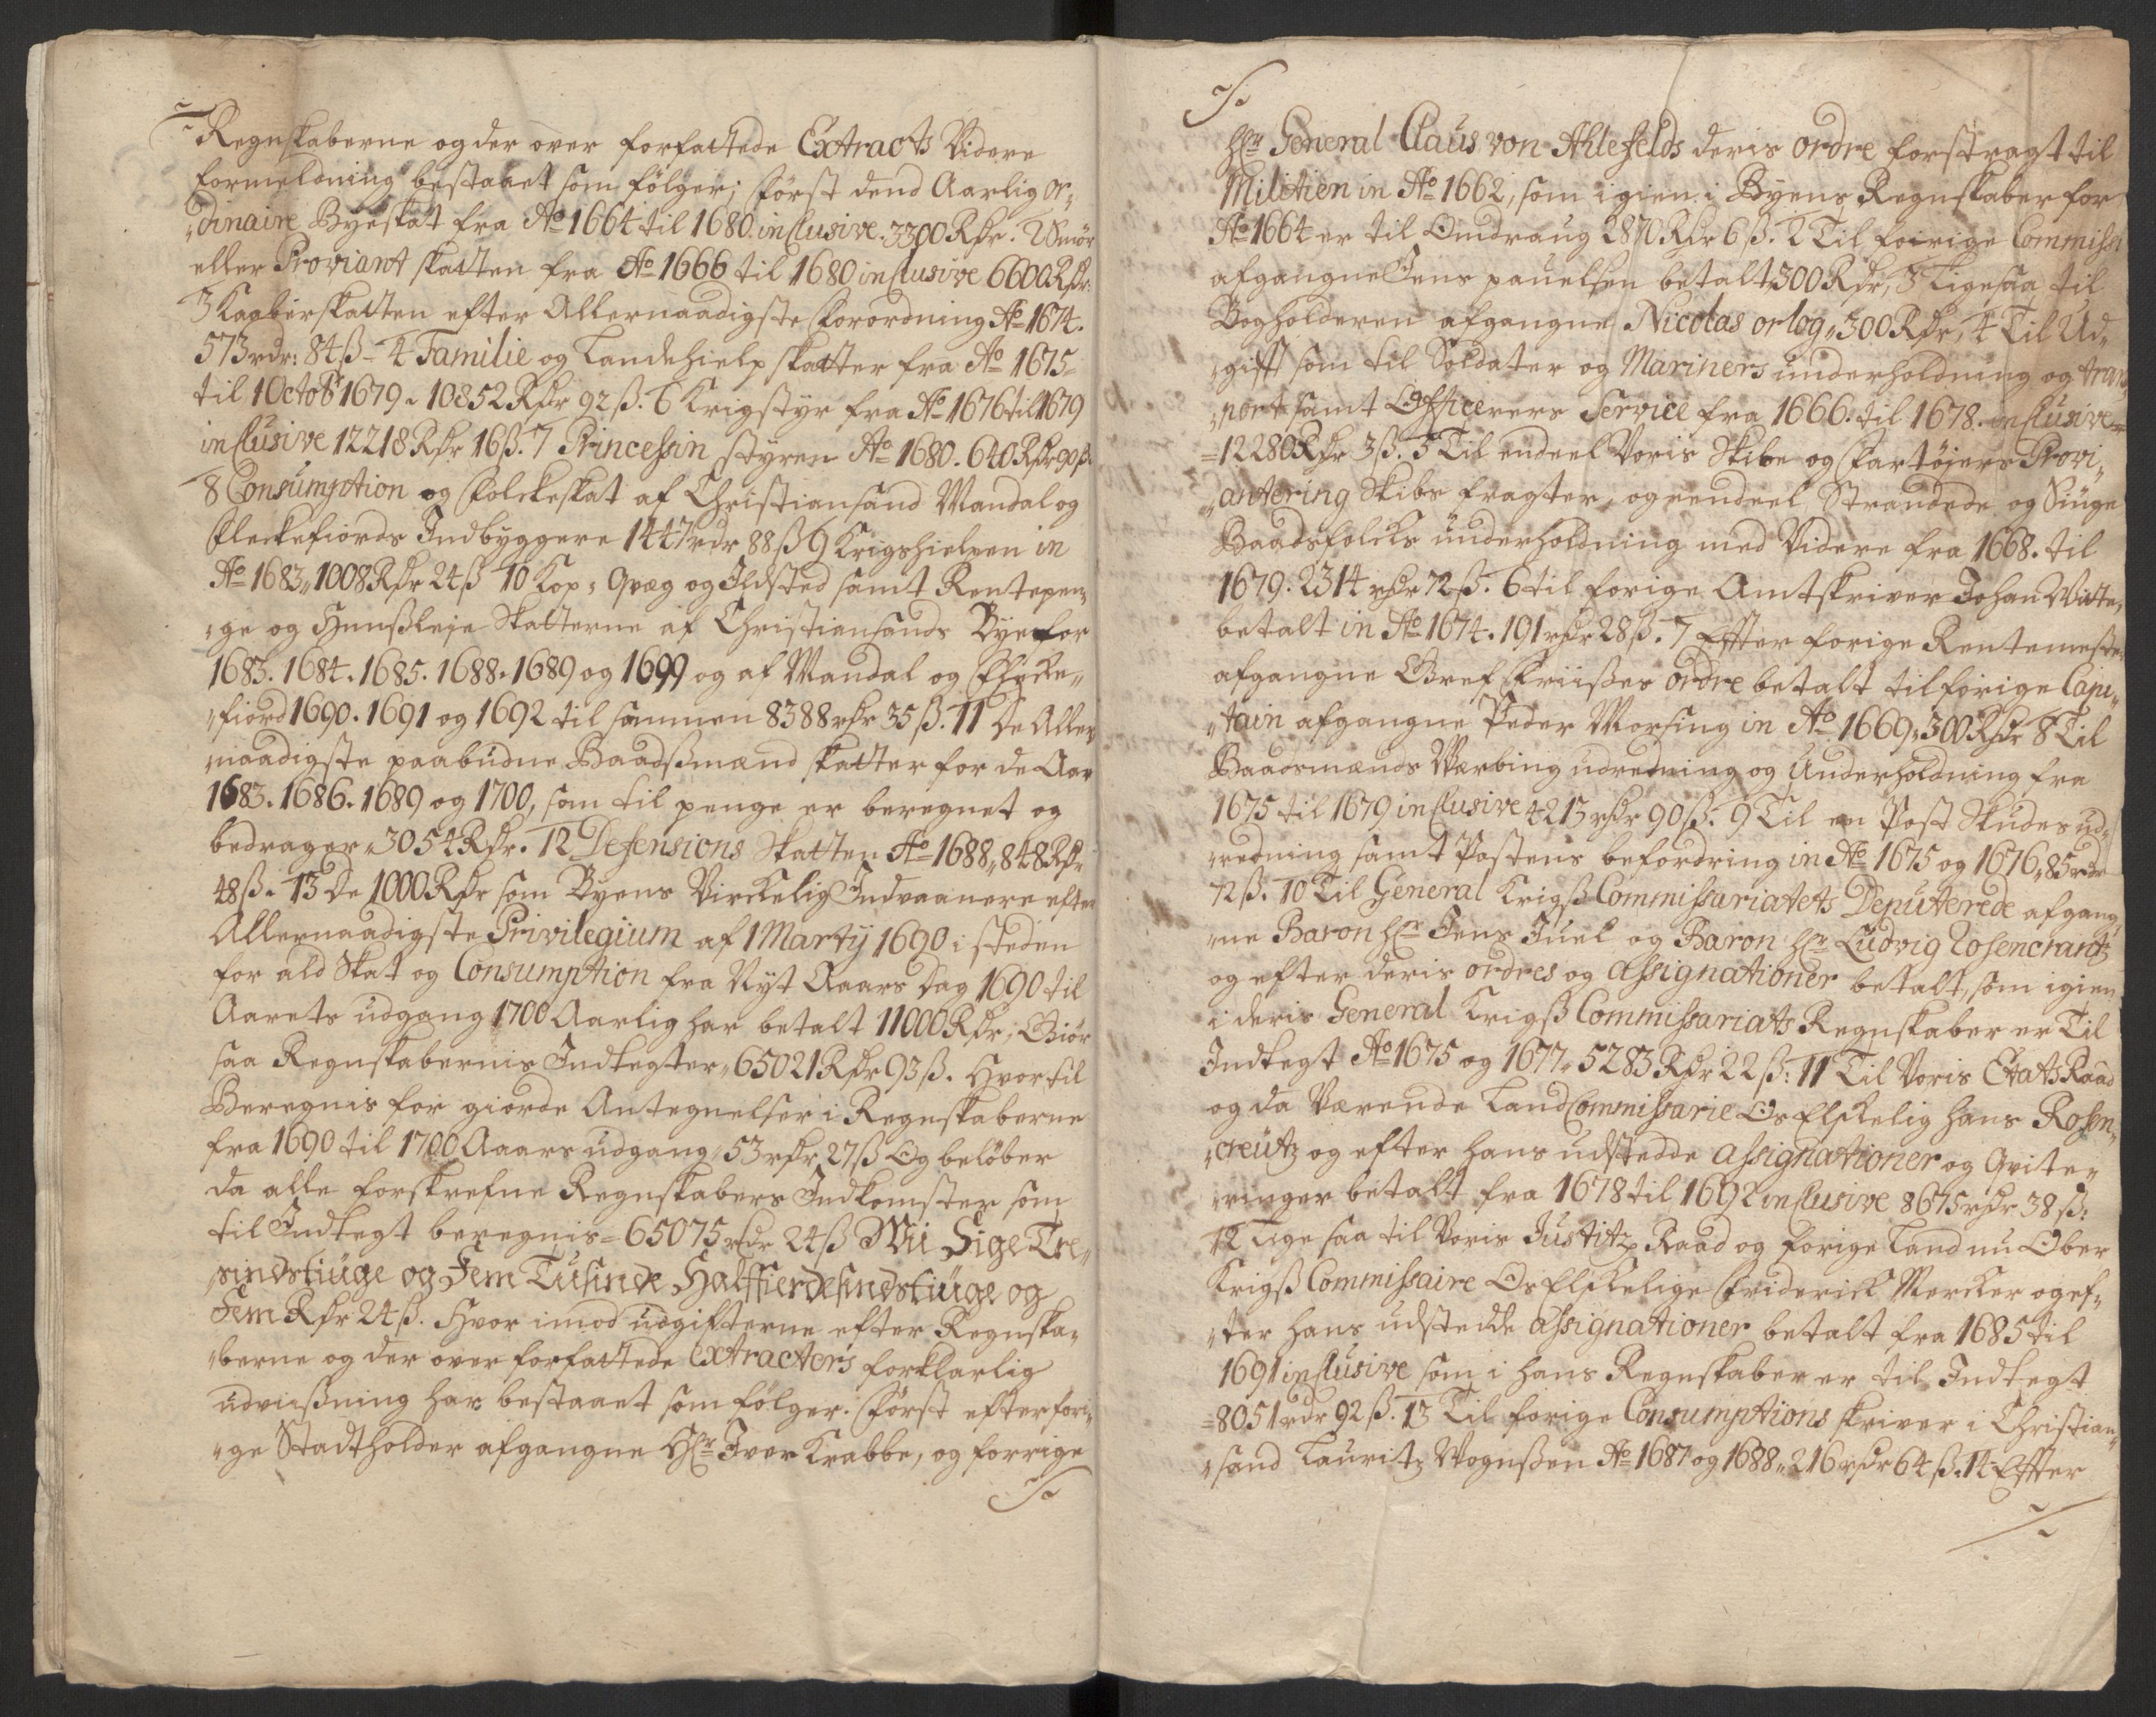 Regnskaberne og der over forfattede Extracts Videre
formeldning bestaaet som følger; Først dend Aarlig or„
„dinaire Byeskat fra Ao 1664 til 1680 inclusive. 3300 Rdr. 2 Smør
eller Proviant skatten fra Ao 1666 til 1680 inclusive 6600 Rdr:
3 Kaaberskatten efter Allernaadigste Forordning Ao 1674.
573 rdr: 84 ß – 4 Familie og Landehielp skatter fra Ao 1675
til 1 Octobr 1679 „ 10852 Rdr 92 ß. 6 Krigstyr fra Ao 1676 til 1679
inclusive 12218 Rdr 16 ß. 7 Princessin styren Ao 1680. 640 Rdr 90 ß.
8 Consumption og Folckeskat af Christiansand Mandal og
Fleckefiords Indbyggere 1447 rdr 88 ß 9 Krigshielpen in
Ao 1683 „ 1008 Rdr 24 ß 10 Kop„ Qvæg og Ildsted samt Rentepen„
„ge og Huußleje Skatterne af Christiansands Bye for
1683. 1684. 1685. 1688. 1689 og 1699 og af Mandal og Flecke„
„fiord 1690. 1691 og 1692 til sammen 8388 rdr 35 ß. 11 De Aller
„naadigste paabudne Baadßmænd skatter for de Aar
1683. 1686. 1689 og 1700, som til penge er beregnet og
bedrager „ 3054 Rdr. 12 Defensions Skatten Ao 1688 „ 848 Rdr
48 ß. 13 De 1000 Rdr som Byens Virckelig Indvaanere efter
Allernaadigste Privilegium af 1 Martÿ 1690 i steden
for ald Skat og Consumption fra Nyt Aaars Dag 1690 til
Aarets udgang 1700 Aarlig har betalt 11000 Rdr; Giør
saa Regnskabernis Indtegter „ 65021 Rdr 93 ß. Hvor til
Beregnis for giorde Antegnelser i Regnskaberne
fra 1690 til 1700 Aaars udgang „ 53 rdr 27 ß Og beløber
da alle forskrefne Regnskabers Indkomster som
til Indtegt beregnis = 65075 rdr 24 ß Wii Sige Tre„
„sindstiuge og Fem Tusinde Halffierdesindstiuge og
Fem Rdr 24 ß. Hvor imod udgifterne efter Regnska„
„berne og der over forfattede Extracters forklarlig
udviißning har bestaaet som følger. Først efter fori„
„ge Stadtholder afgangne Hr Iver Krabbe, og forrige
Hr General Claus von Ahlefelds deris ordre forstragt til
Militien in Ao 1662, som igien i Byens Regnskaber for
Ao 1664 er til Omdraug 2870 Rdr 6 ß. 2 Til forige Commissa
afgangne Jens pauelsen betalt „ 300 Rdr, 3 Ligesaa til
Bogholderen afgangne Nicolas orlog „ 300 Rdr, 4 Til Ud„
„gift som til Soldater og Mariners underholdning og trans
„port samt Officerers Service fra 1666. til 1678. inclusive
= 12280 Rdr 3 ß. 5 Til endeel Voris Skibe og Fartøjers Provi„
„antering Skibs fragter, og eendeel Strandede og Siuge
Baadsfolcks underholdning med Videre fra 1668. til
1679. 2314 rdr 72 ß. 6 til forige Amtskriver Johan Witte,
betalt in Ao 1674. 191 rdr 28 ß. 7 Efter forige Rentemester
afgangne Gref Friißes ordre betalt til forige Capi„
„tain afgangne Peder Morsing in Ao 1669 „ 300 Rdr 8 Til
Baadsmænds Werbing udredning og Underholdning fra
1675 til 1679 inclusive 4213 rdr 90 ß. 9 Til en Post Skudes ud„
„redning samt Postens befordring in Ao 1675 og 1676 „ 85 rdr
72 ß. 10 Til General Krigß Commissariatets Deputerede afgang„
„ne Baron Hr Jens Juel og Baron Hr Ludvig Rosencrantz
og efter deris ordres og assignationer betalt, som igien
i deris General Krigß Commissariats Regnskaber er Til
Indtegt Ao 1675 og 1677 „ 5283 Rdr 22 ß: 11 Til Voris Etats Raad
og da Værende Land Commissarie Os Elskelig Hans Rosen„
„creütz og efter hans udstedde assignationer og Qvite„
„ringer betalt fra 1678 til 1692 inclusive 8675 rdr 38 ß:
12 Lige saa til Voris Justitz Raad og forige Land nu Ober
Krigß Commissaire Os Elskelige Friderick Mercker og ef„
„ter hans udstedde assignationer betalt fra 1685 til
1691 inclusive som i hans Regnskaber er til Indtegt
= 8051 rdr 92 ß. 13 Til forige Consumptions skriver i Christian„
„sand Lauritz Mognßen Ao 1687 og 1688 „ 216 rdr 64 ß. 14 Efter